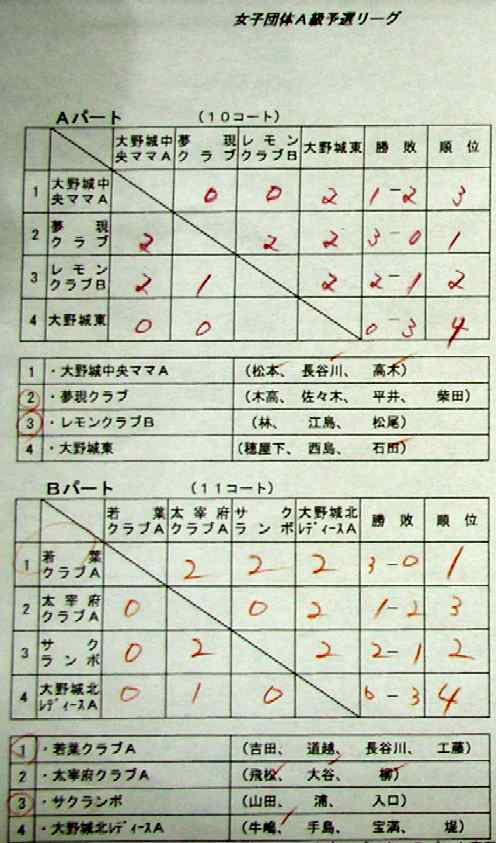 女子団体A級予選リーグ
Aパート (10コート)
大野城中央ママA 夢現クラブ レモンクラブB 大野城東 勝敗 順位
1 大野城中央ママA 0 0 2 1-2 3
2 夢現クラブ 2 2 2 3-0 1
3 レモンクラブB 2 1 2 2-1 2
4 大野城東 0 0 0-3 4
1 ・大野城中央ママA (松本、 長谷川、 高木)
2 ・夢現クラブ (木高、 佐々木、 平井、 柴田)
3 ・レモンクラブB (林、 江島、 松尾)
4 ・大野城東 (穂屋下、 西島、 石田)
Bパート (11コート)
若葉クラブA 太宰府クラブA サクランボ 大野城北レディースA 勝敗 順位
1 若葉クラブA 2 2 2 3-0 1
2 太宰府クラブA 0 0 2 1-2 3
3 サクランボ 0 2 2 2-1 2
4 大野城北レディースA 0 1 0 0-3 4
1 ・若葉クラブA (吉田、 道越、 長谷川、 工藤)
2 ・太宰府クラブA (飛松、 大谷、 柳)
3 ・サクランボ (山田、 浦、 入口)
4 ・大野城北レディースA (牛嶋、 手島、 宝満、 堤)